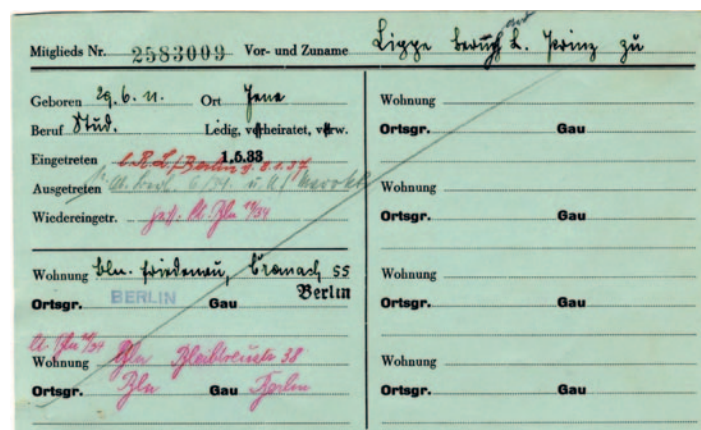 Mitglieds Nr. 2583009 Vor- und Zuname Lippe Bernh. L. Prinz zu
Geboren 29. 6. 11. Ort Jena
Beruf Stud. Ledig, verheiratet, verw.
Eingetreten 1.5.33
Ausgetreten
Wiedereingetr.
Wohnung Bln. Friedenau, Cranach 55
Ortsgr. BERLIN Gau Berlin
Wohnung Bln Bleibtreustr 38
Ortsgr. Bln Gau Berlin
Wohnung
Ortsgr. Gau
Wohnung
Ortsgr. Gau
Wohnung
Ortsgr. Gau
Wohnung
Ortsgr. Gau